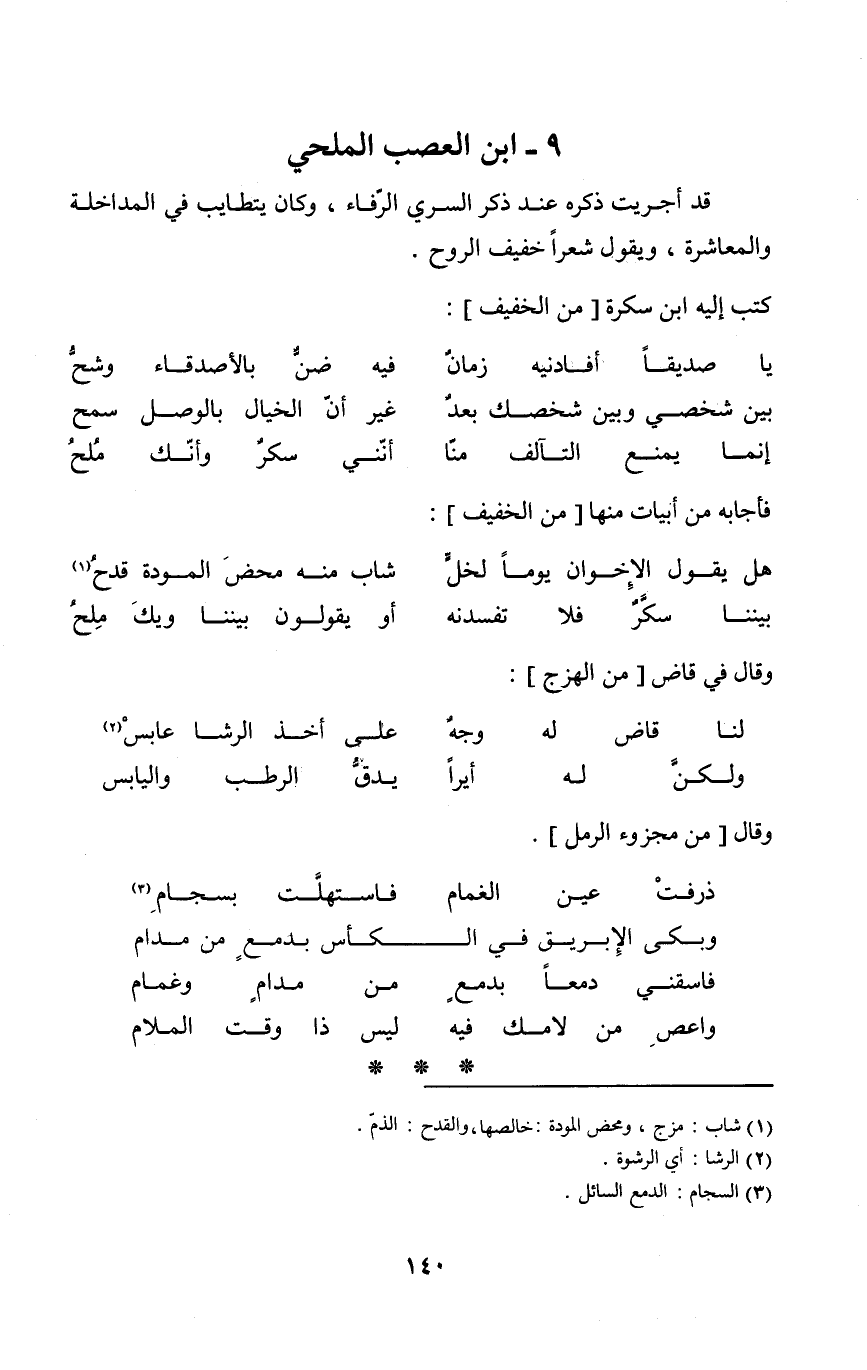 ٩ - ابن العصب الملحي
قد أجريت ذكره عند ذكر السري الرّفاء ، وكان يتطايب في المداخلة
والمعاشرة ، ويقول شعراً خفيف الروح .
كتب إليه ابن سكرة [ من الخفيف ] :
يا صديقاً أفادنيه زمانٌ فيه ضنٌّ بالأصدقاء وشحُّ
بين شخصي وبين شخصك بعدٌ غير أنّ الخيال بالوصل سمح
إنما يمنع التآلف منّا أنّني سكرٌ وأنّك مُلحُ
فأجابه من أبيات منها [ من الخفيف ] :
هل يقول الإخوان يوماً لخلٍّ شاب منه محضَ المودة قدحُ(١)
بيننا سكَّرٌ فلا تفسدنه أو يقولون بيننا ويكَ مِلحُ
وقال في قاض [ من الهزج ] :
لنا قاض له وجهٌ على أخذ الرشا عابسْ(٢)
ولكنَّ له أيراً يدقُّ الرطب واليابس
وقال [ من مجزوء الرمل ] .
ذرفتْ عين الغمام فاستهلَّت بسجامِ(٣)
وبكى الإبريق في الـكأس بدمعٍ من مدام
فاسقني دمعاً بدمعٍ من مدامٍ وغمام
واعصِ من لامك فيه ليس ذا وقت الملام
* * *
(١) شاب : مزج ، ومحض المودة : خالصها، والقدح : الذمّ .
(٢) الرشا : أي الرشوة .
(٣) السجام : الدمع السائل .
١٤٠